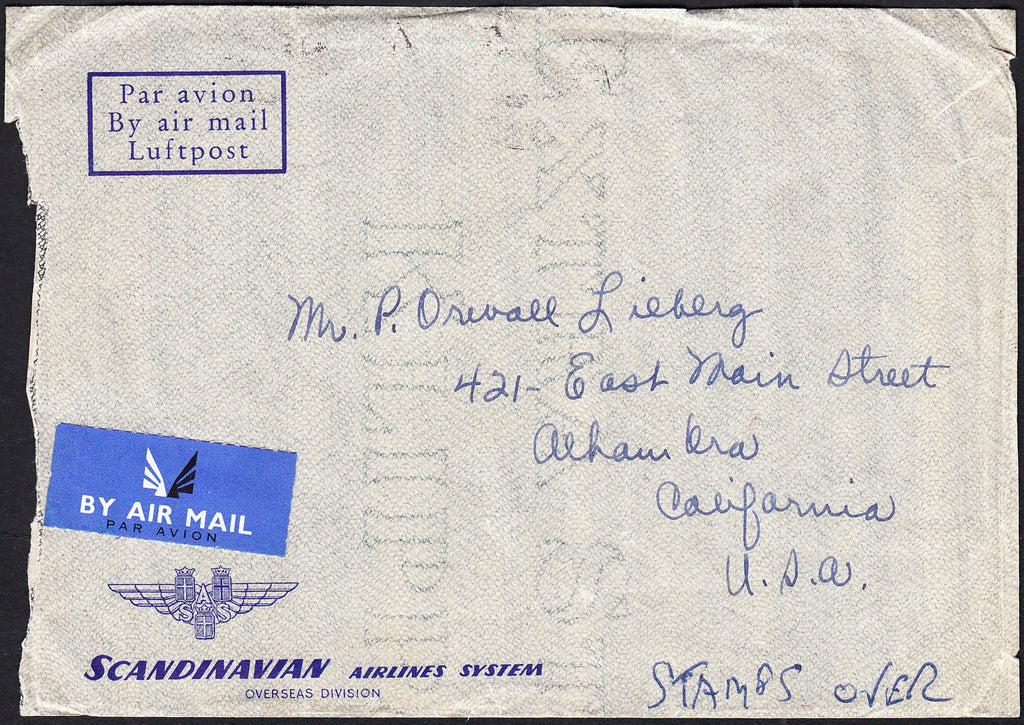 Par avion
By air mail
Luftpost
Mr. P. Orvall Lieberg
421- East Main Street
Alhambra
California
U.S.A.
BY AIR MAIL
PAR AVION
SAS
SCANDINAVIAN AIRLINES SYSTEM
OVERSEAS DIVISION
STAMPS OVER